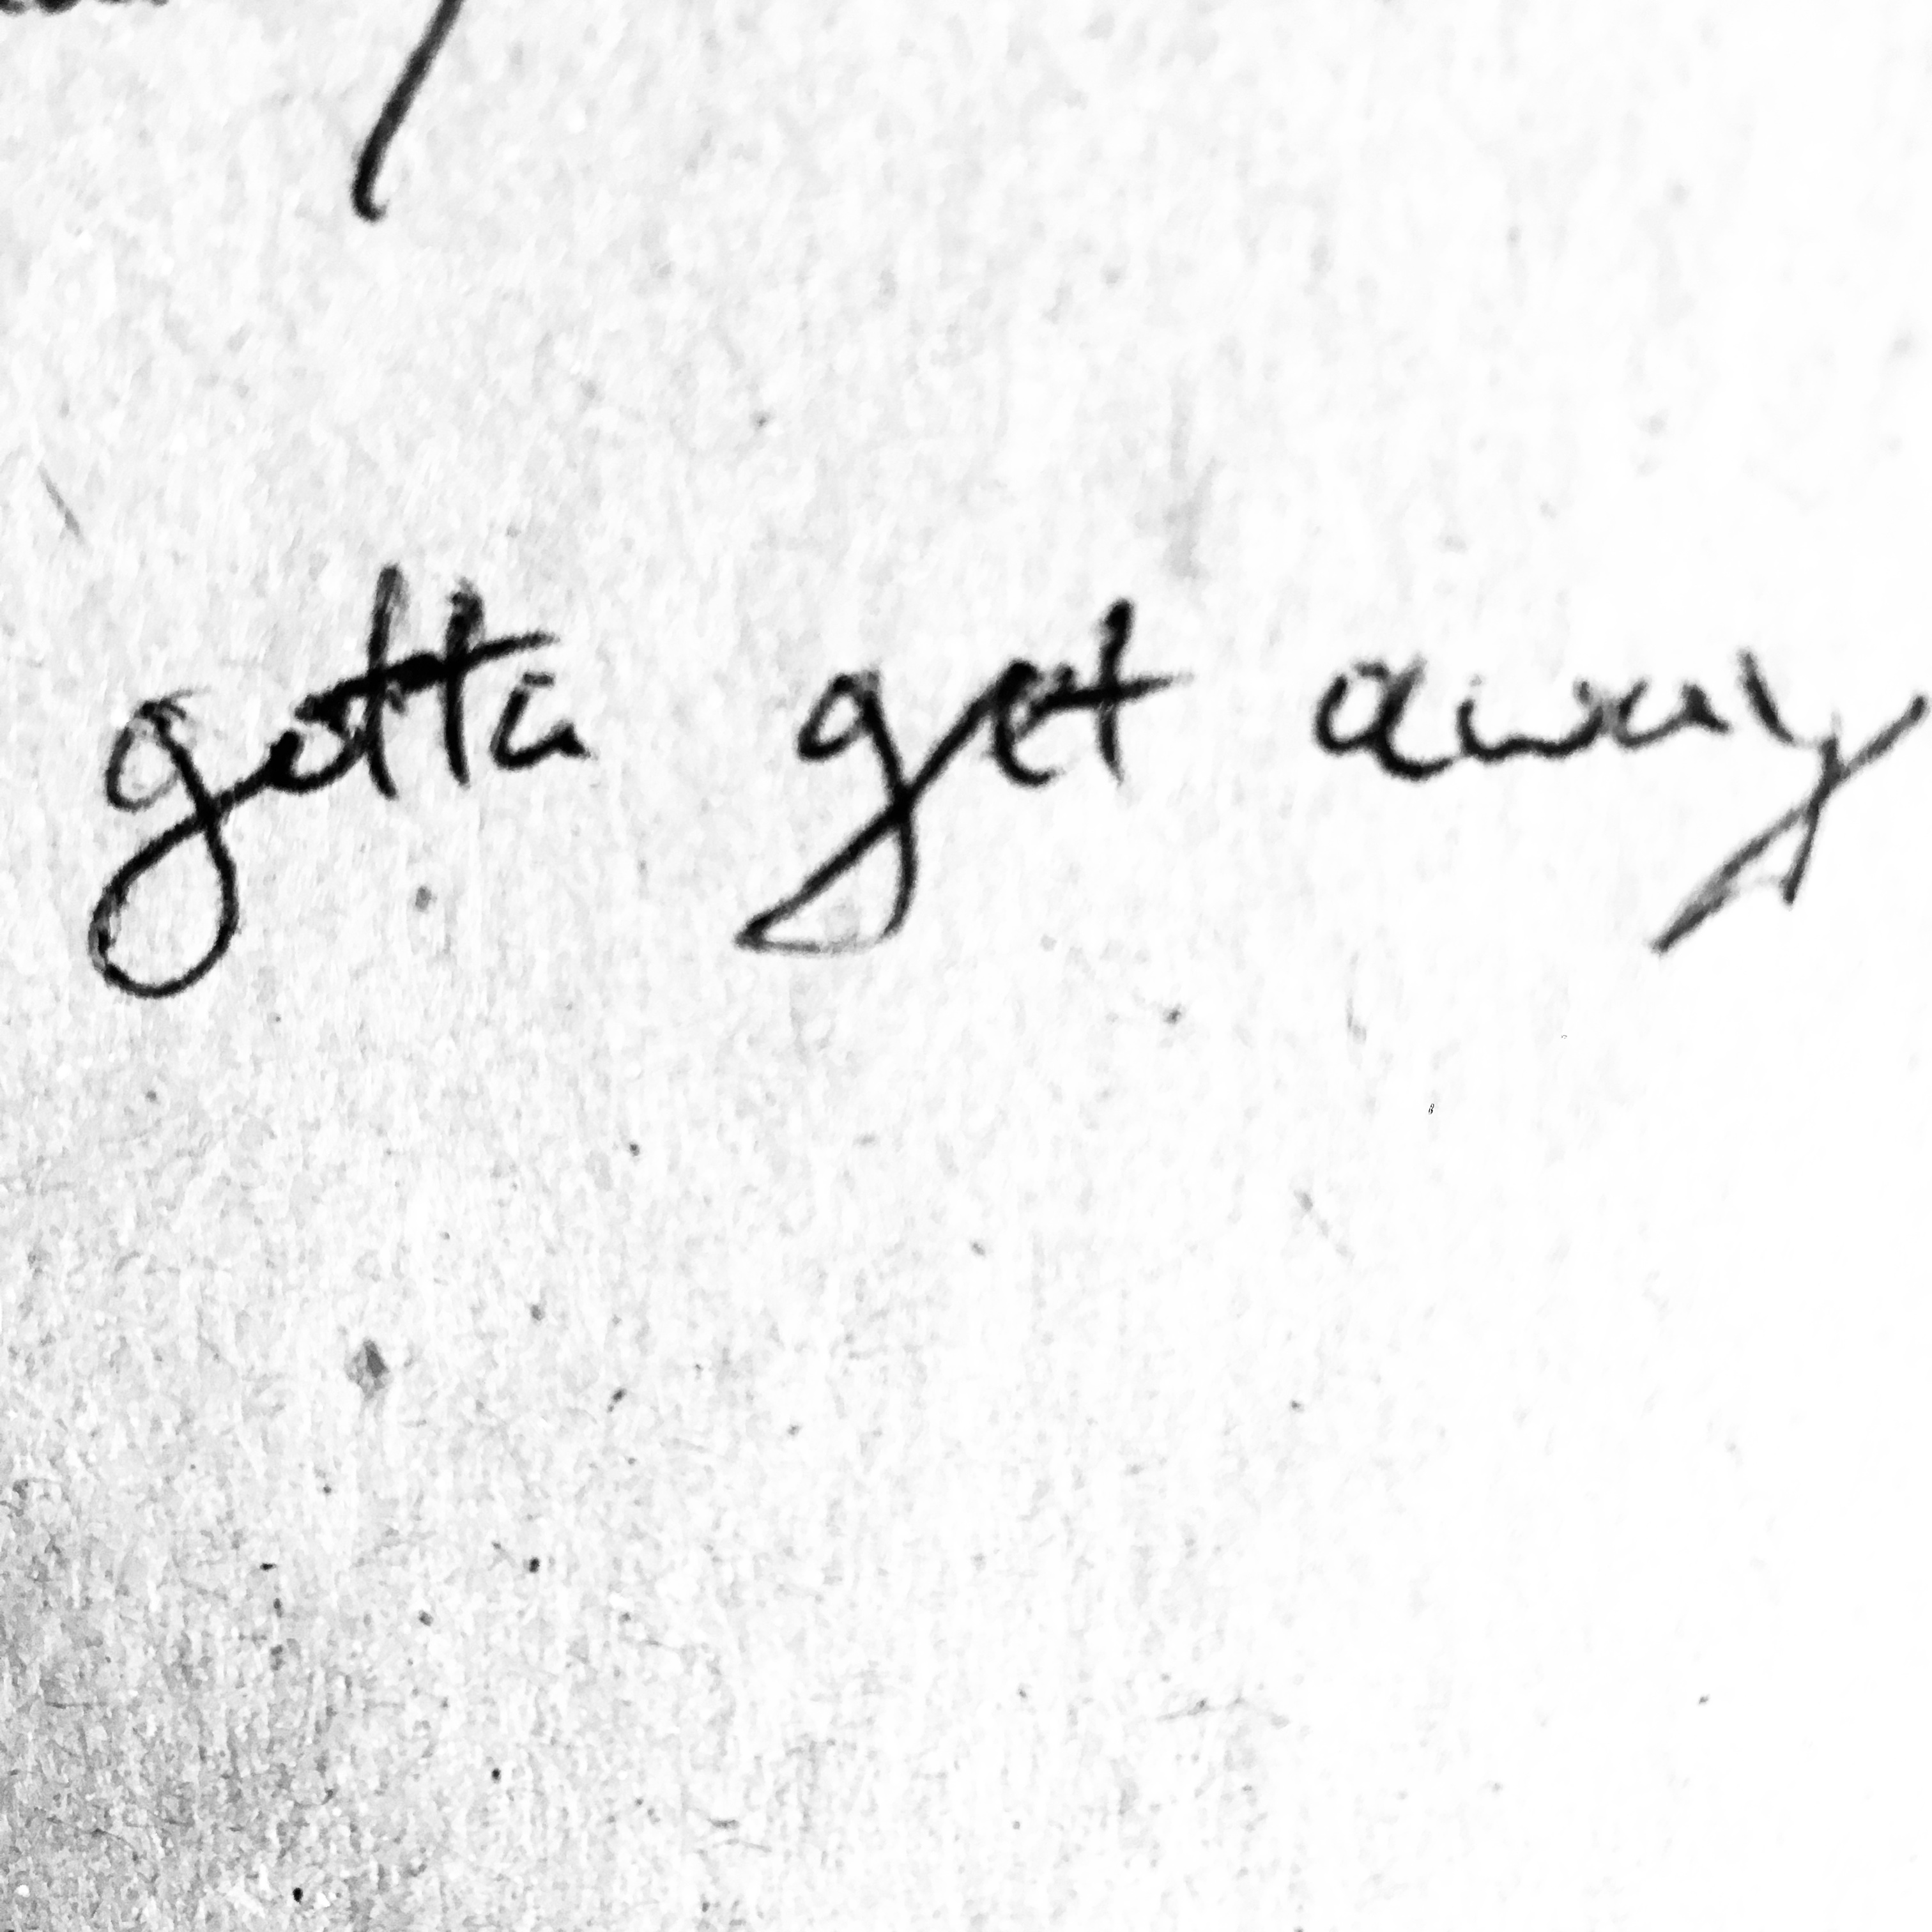 gotta get away